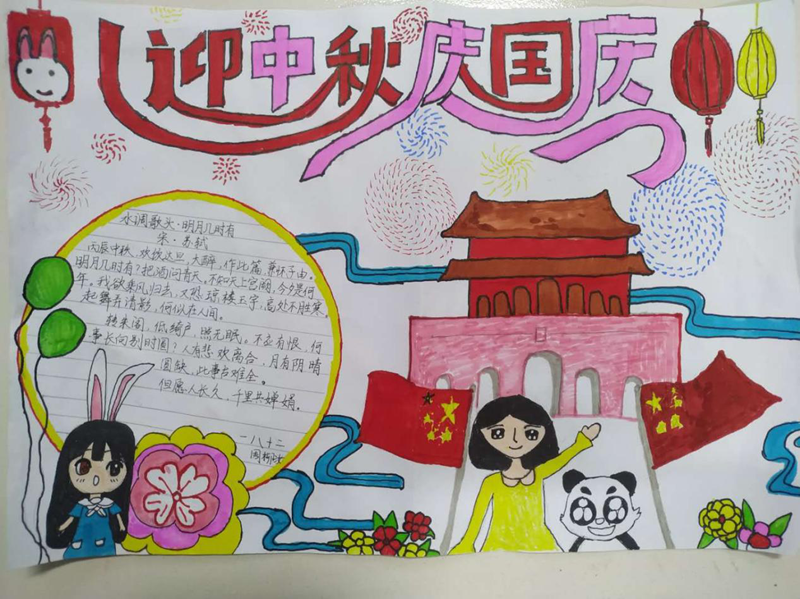 迎中秋庆国庆
水调歌头·明月几时有
宋·苏轼
丙辰中秋,欢饮达旦,大醉,作此篇,兼怀子由。
明月几时有?把酒问青天。不知天上宫阙,今夕是何
年。我欲乘风归去,又恐琼楼玉宇,高处不胜寒。
起舞弄清影,何似在人间。
转朱阁,低绮户,照无眠。不应有恨,何
事长向别时圆?人有悲欢离合,月有阴晴
圆缺,此事古难全。
但愿人长久,千里共婵娟。
一八十二